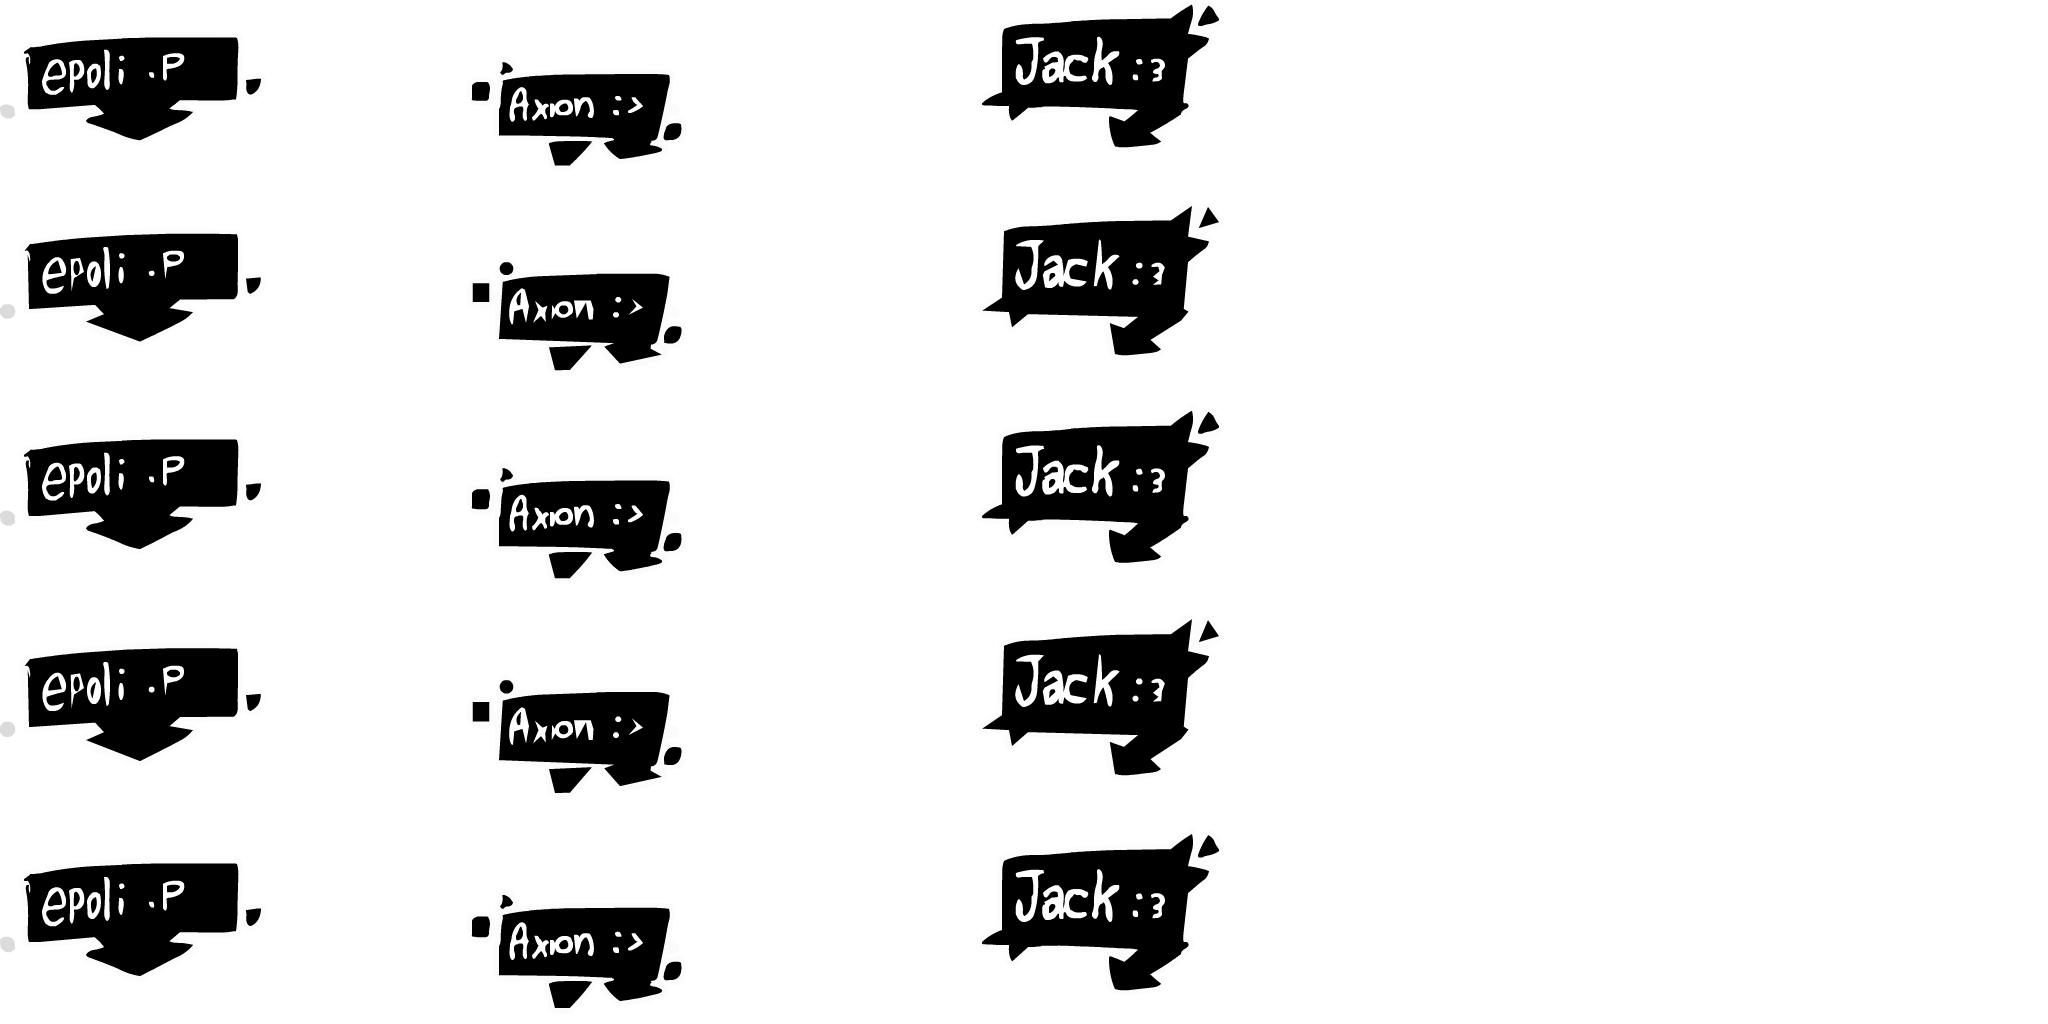 epoli .P
Axion :>
Jack :3
epoli .P
Axion :>
Jack :3
epoli .P
Axion :>
Jack :3
epoli .P
Axion :>
Jack :3
epoli .P
Axion :>
Jack :3